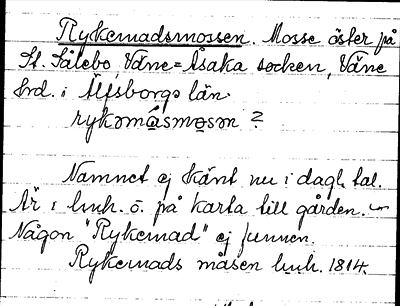 Rykemadsmossen. Mosse öster på
St. Sålebo, Väne=Åsaka socken, Väne
hrd. i Älfsborgs län.
rykǝmásmosǝn ?
Namnet ej känt nu i dagl. tal.
Är i huh. ö. på karta till gården.
Någon "Rykemad" ej funnen.
Rykemads måsen huh. 1814.